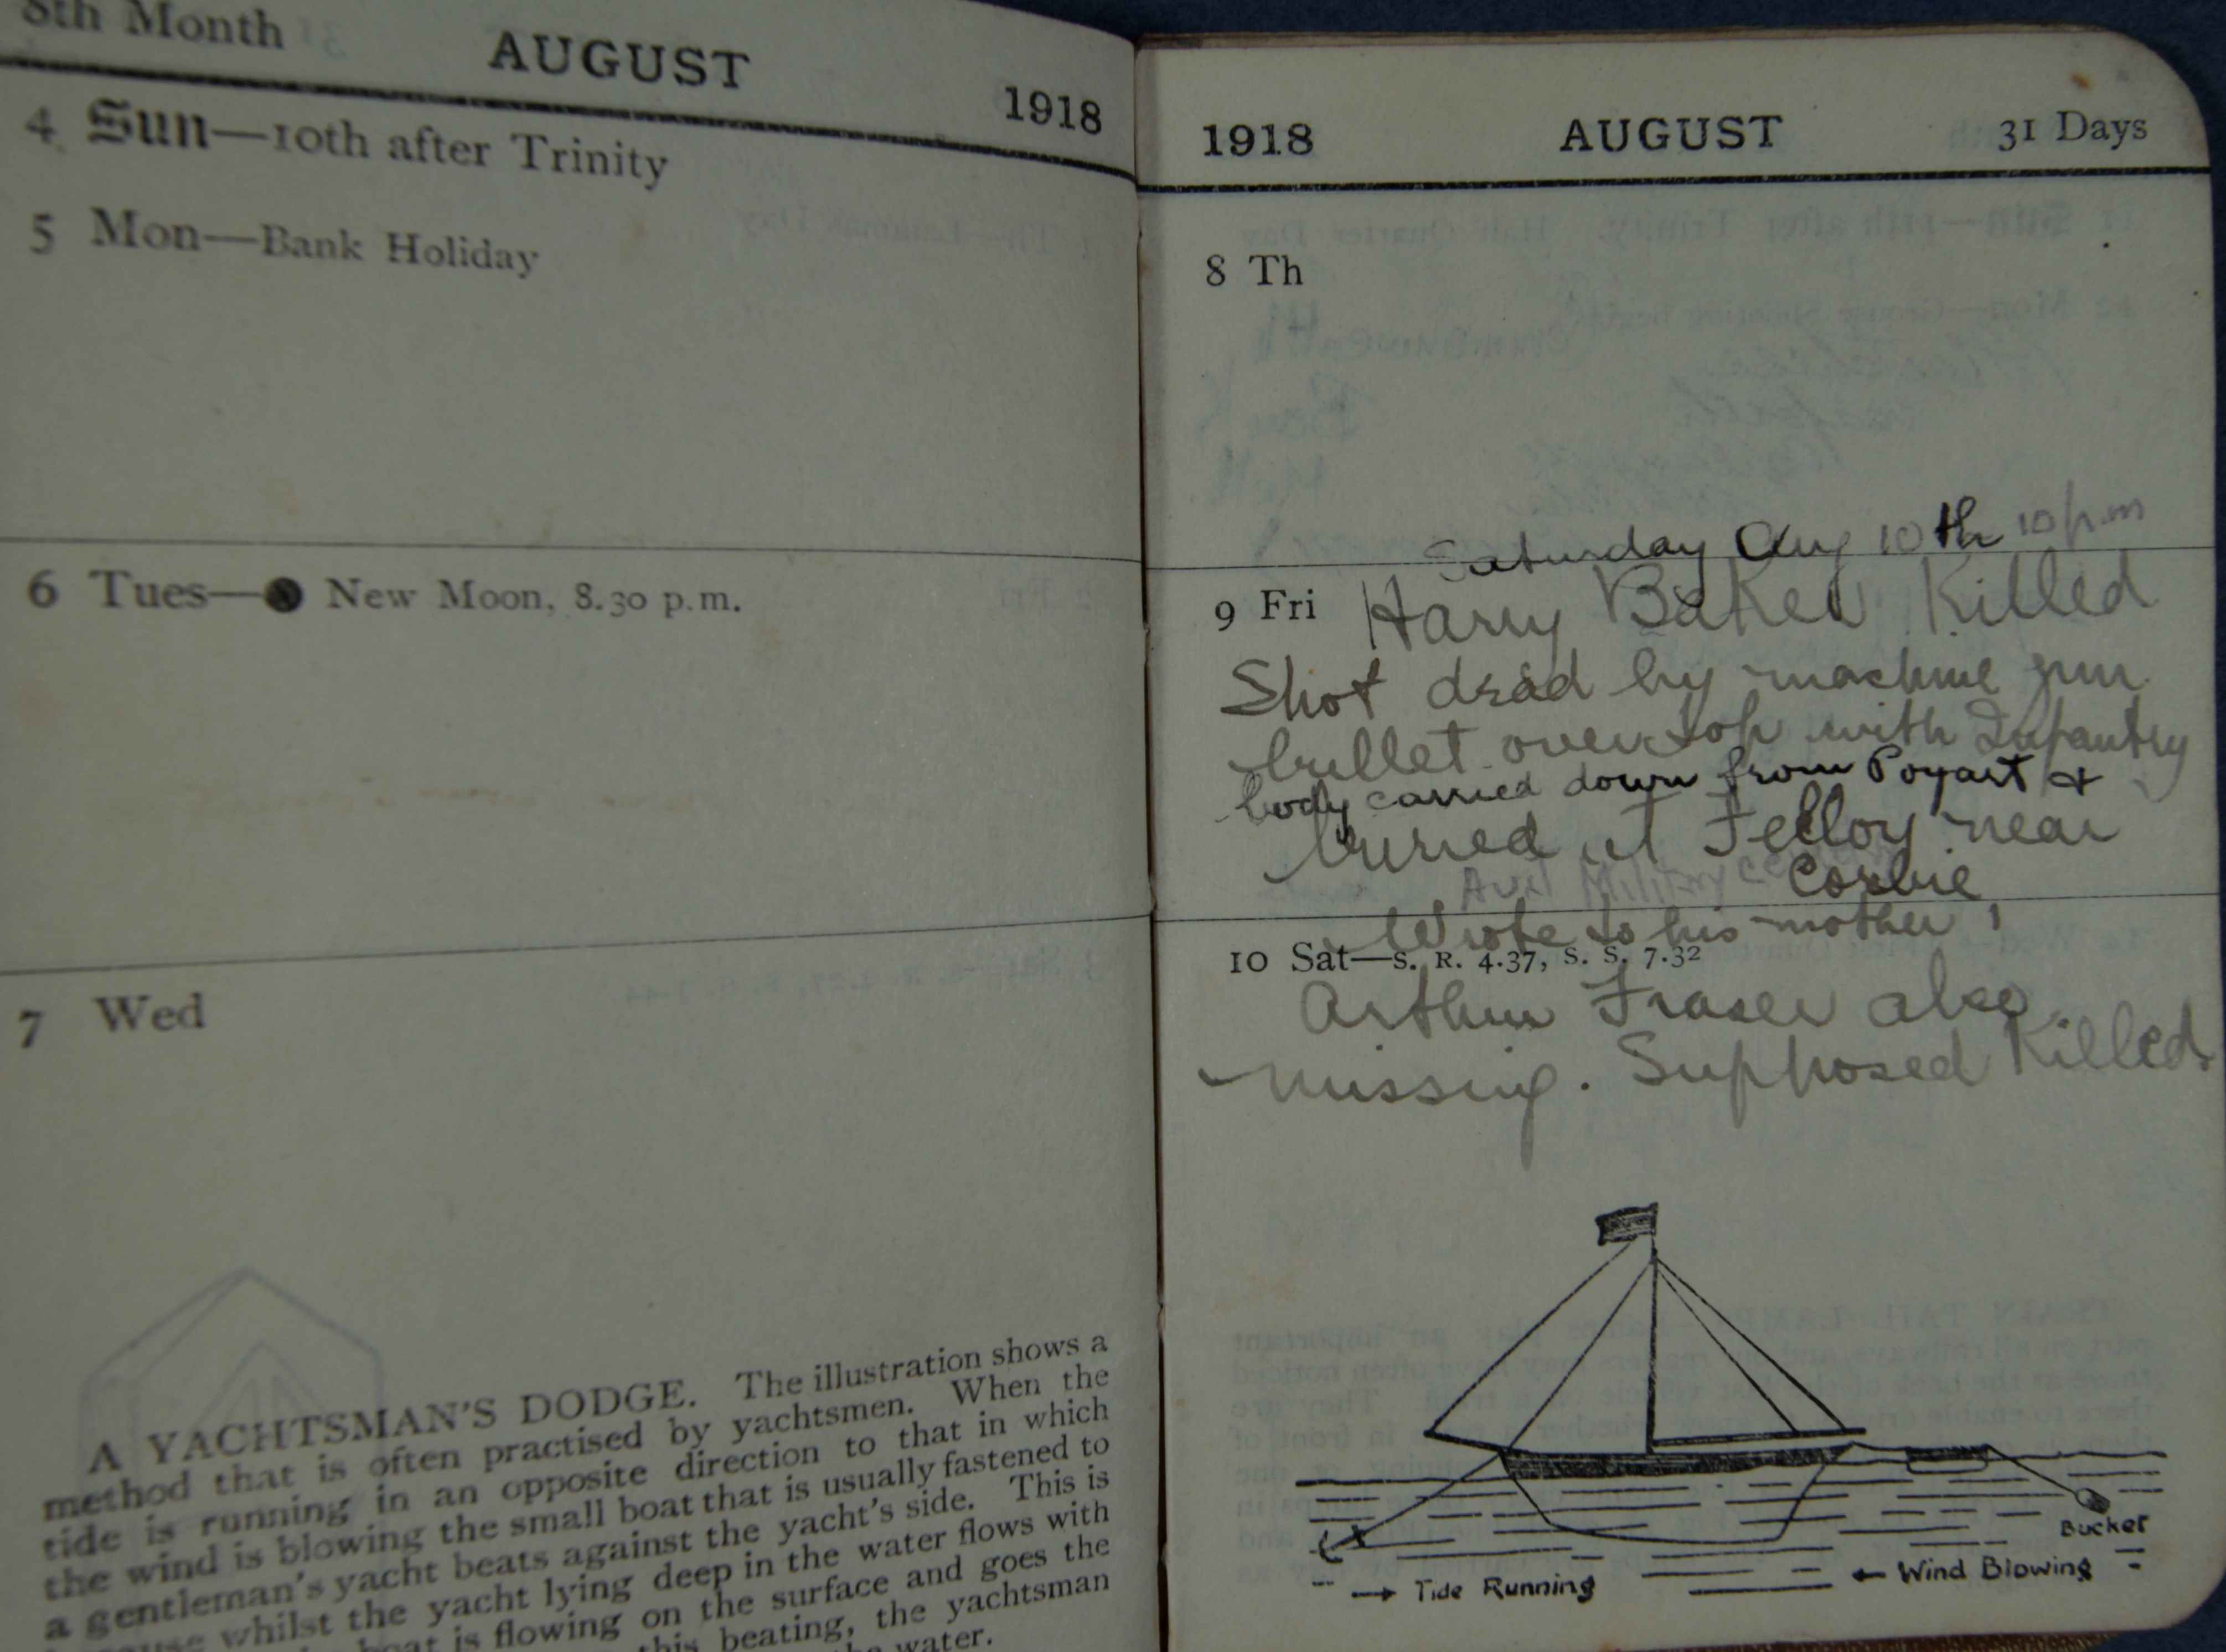 8th Month AUGUST 1918
4 Sun—10th after Trinity
5 Mon—Bank Holiday
6 Tues— New Moon, 8.30 p.m.
7 Wed
A YACHTSMAN'S DODGE. The illustration shows a
method that is often practised by yachtsmen. When the
tide is running in an opposite direction to that in which
the wind is blowing the small boat that is usually fastened to
a gentleman's yacht beats against the yacht's side. This is
whilst the yacht lying deep in the water flows with
boat is flowing on the surface and goes the
this beating, the yachtsman
water.
1918 AUGUST 31 Days
8 Th
Saturday Aug 10th 10 p.m
9 Fri Harry Baker Killed
Shot dead by machine gun
bullet over top with Infantry
body carried down from Poyart &
buried at Felloy near
Military Corbie
Wrote to his mother
10 Sat—S. R. 4.37, S. S. 7.32
Arthur Fraser also
missing. Supposed Killed.
Bucket
→ Tide Running ← Wind Blowing